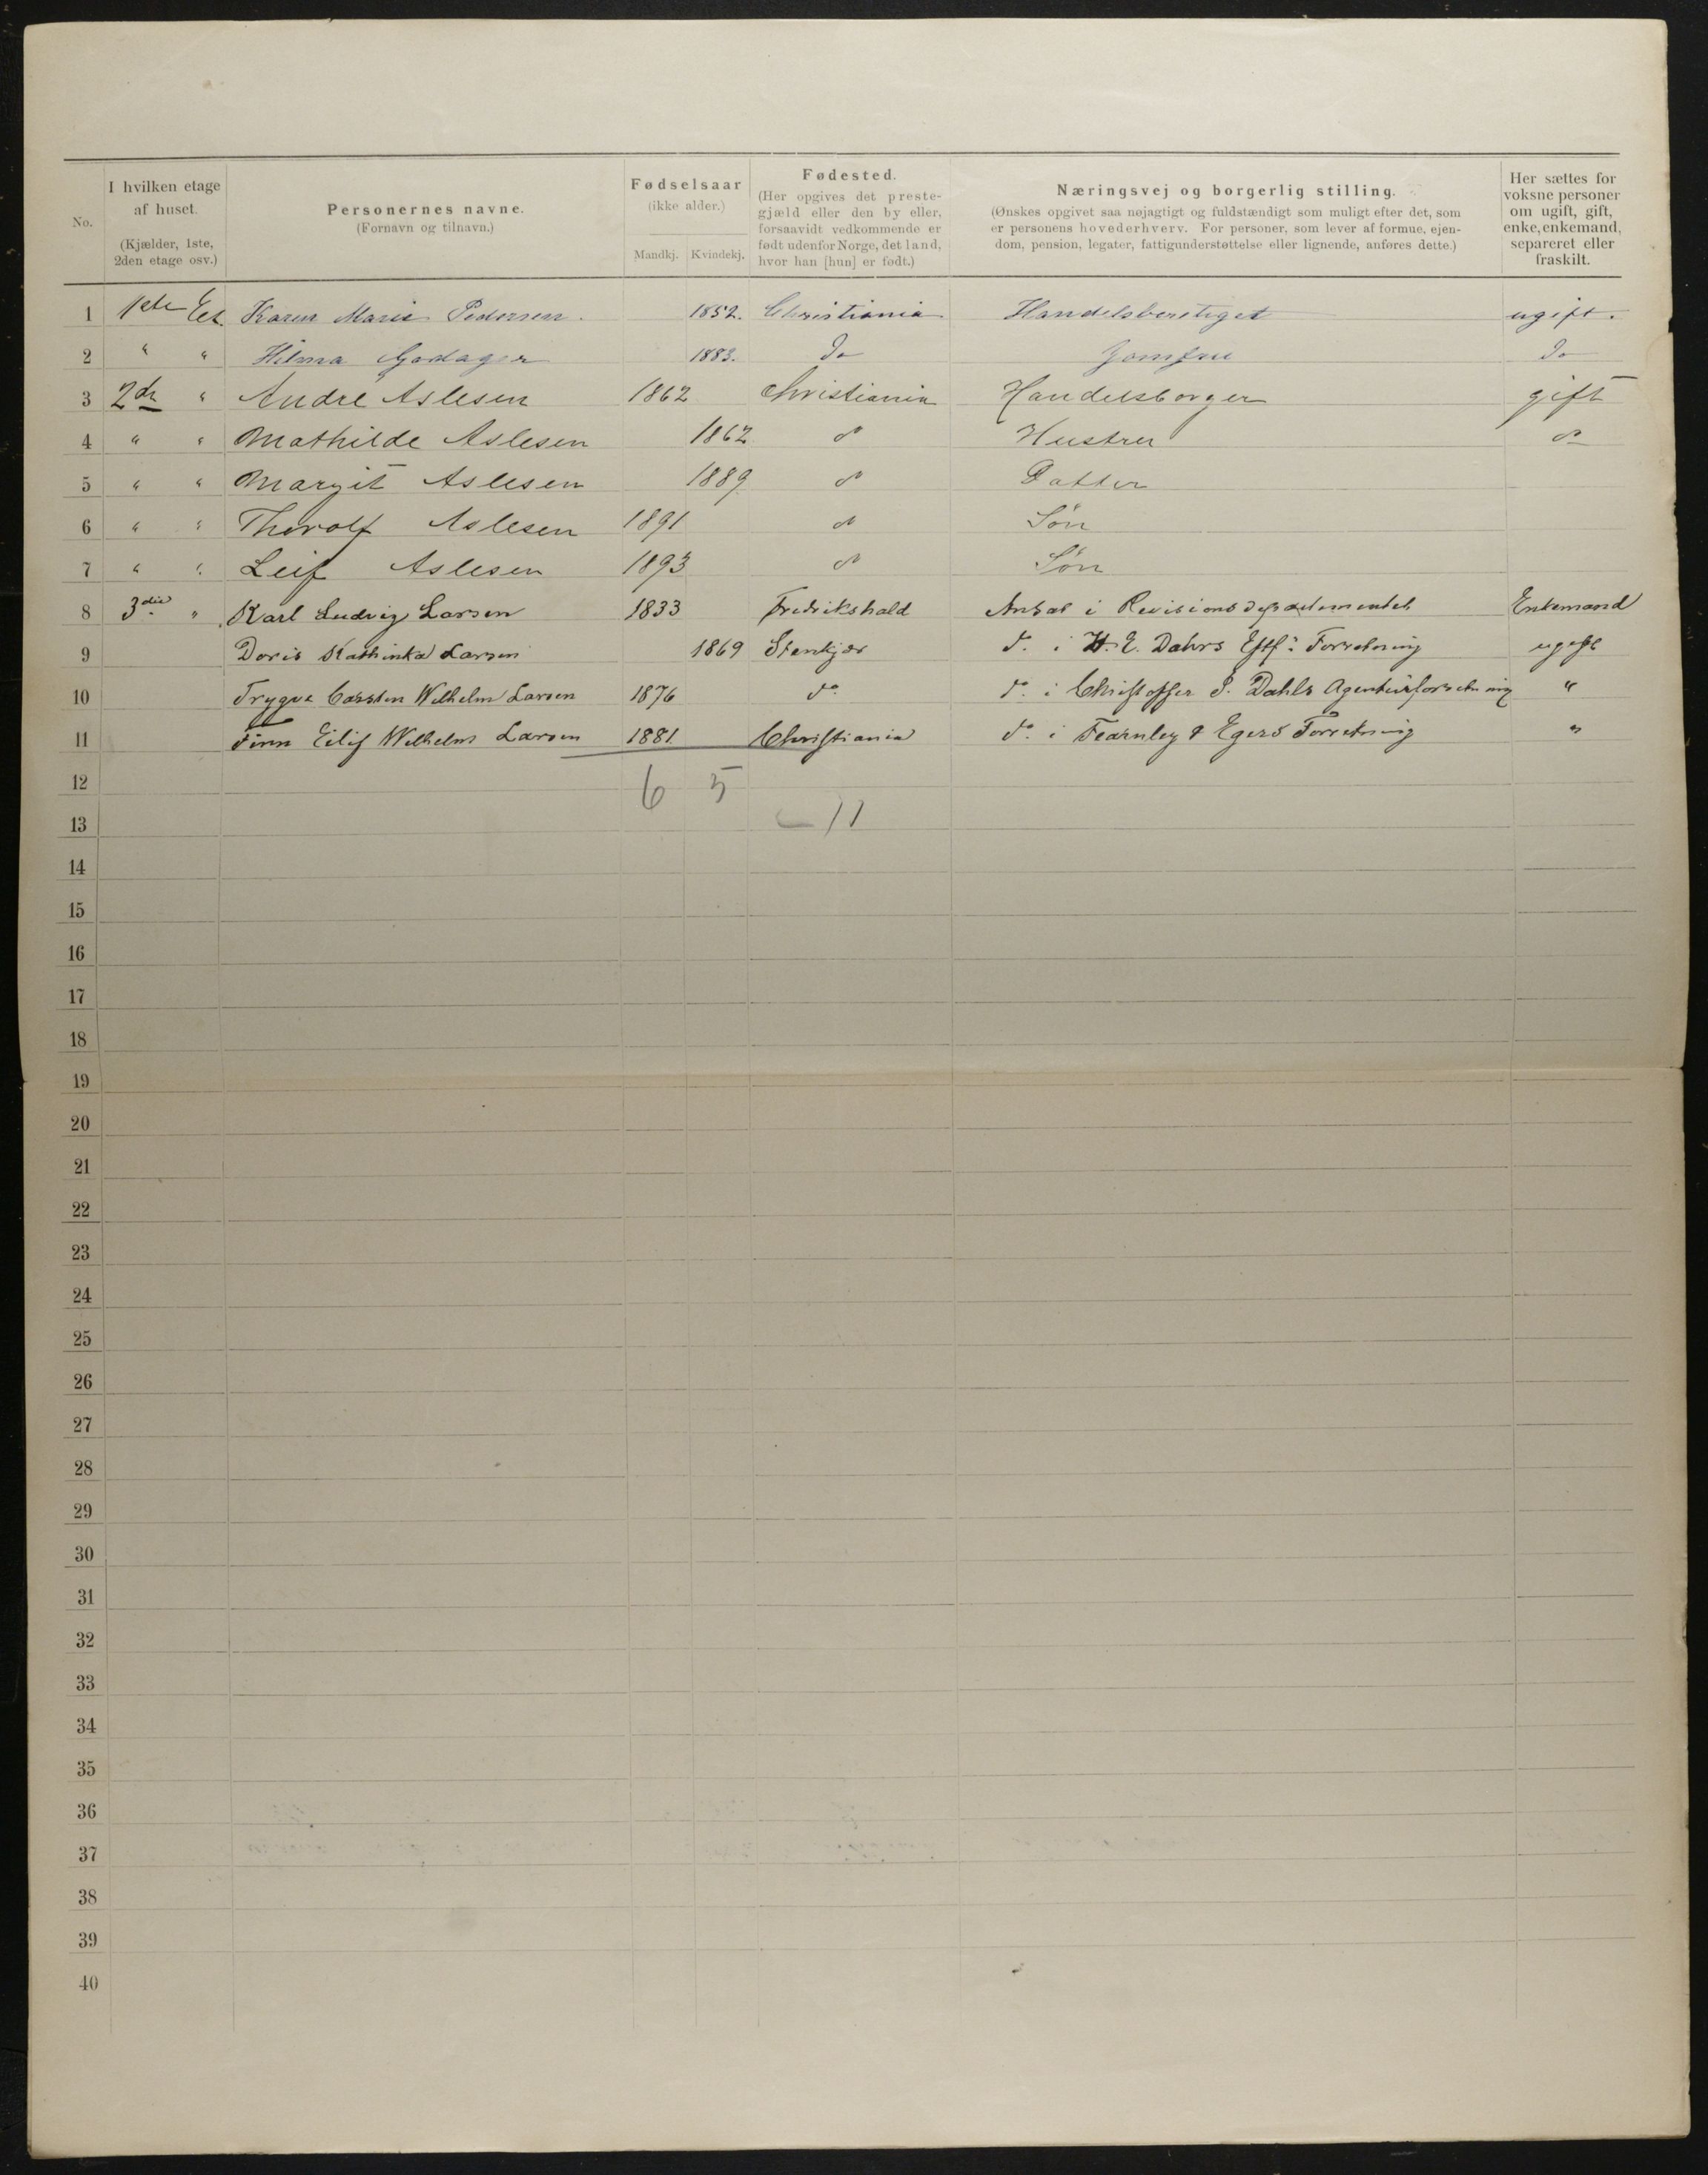 No.
I hvilken etage
af huset.
(Kjælder, 1ste,
2den etage osv.)
Personernes navne.
(Fornavn og tilnavn.)
Fødselsaar
(ikke alder.)
Mandkj. Kvindekj.
Fødested.
(Her opgives det preste-
gjæld eller den by eller,
forsaavidt vedkommende er
født udenfor Norge, det land,
hvor han [hun] er født.)
Næringsvej og borgerlig stilling.
(Ønskes opgivet saa nøjagtigt og fuldstændigt som muligt efter det, som
er personens hovederhverv. For personer, som lever af formue, ejen-
dom, pension, legater, fattigunderstøttelse eller lignende, anføres dette.)
Her sættes for
voksne personer
om ugift, gift,
enke, enkemand,
separeret eller
fraskilt.
1 1ste Et. Karen Marie Pedersen. 1852. Christiania Handelsberetiget ugift.
2 " " Hilma Godager 1883. Do Jomfru Do
3 2den " André Aslesen 1862 Christiania Handelsborger gift
4 " " Mathilde Aslesen 1862 do Hustru do
5 " " Margit Aslesen 1889 do Datter
6 " " Thorolf Aslesen 1891 do Søn
7 " " Leif Aslesen 1893 do Søn
8 3die " Karl Ludvig Larsen 1833 Fredrikshald Ansat i Revisionsdepartementet Enkemand
9 Doris Kathinka Larsen 1869 Stenkjær do. i H. E. Dahrs Eftf. Forretning ugift
10 Trygve Carsten Wilhelm Larsen 1876 do do. i Christoffer P. Dahls Agenturforretning "
11 Finn Eilif Wilhelm Larsen 1881 Christiania do. i Fearnley & Egers Forretning "
12 6 5
13 11
14
15
16
17
18
19
20
21
22
23
24
25
26
27
28
29
30
31
32
33
34
35
36
37
38
39
40